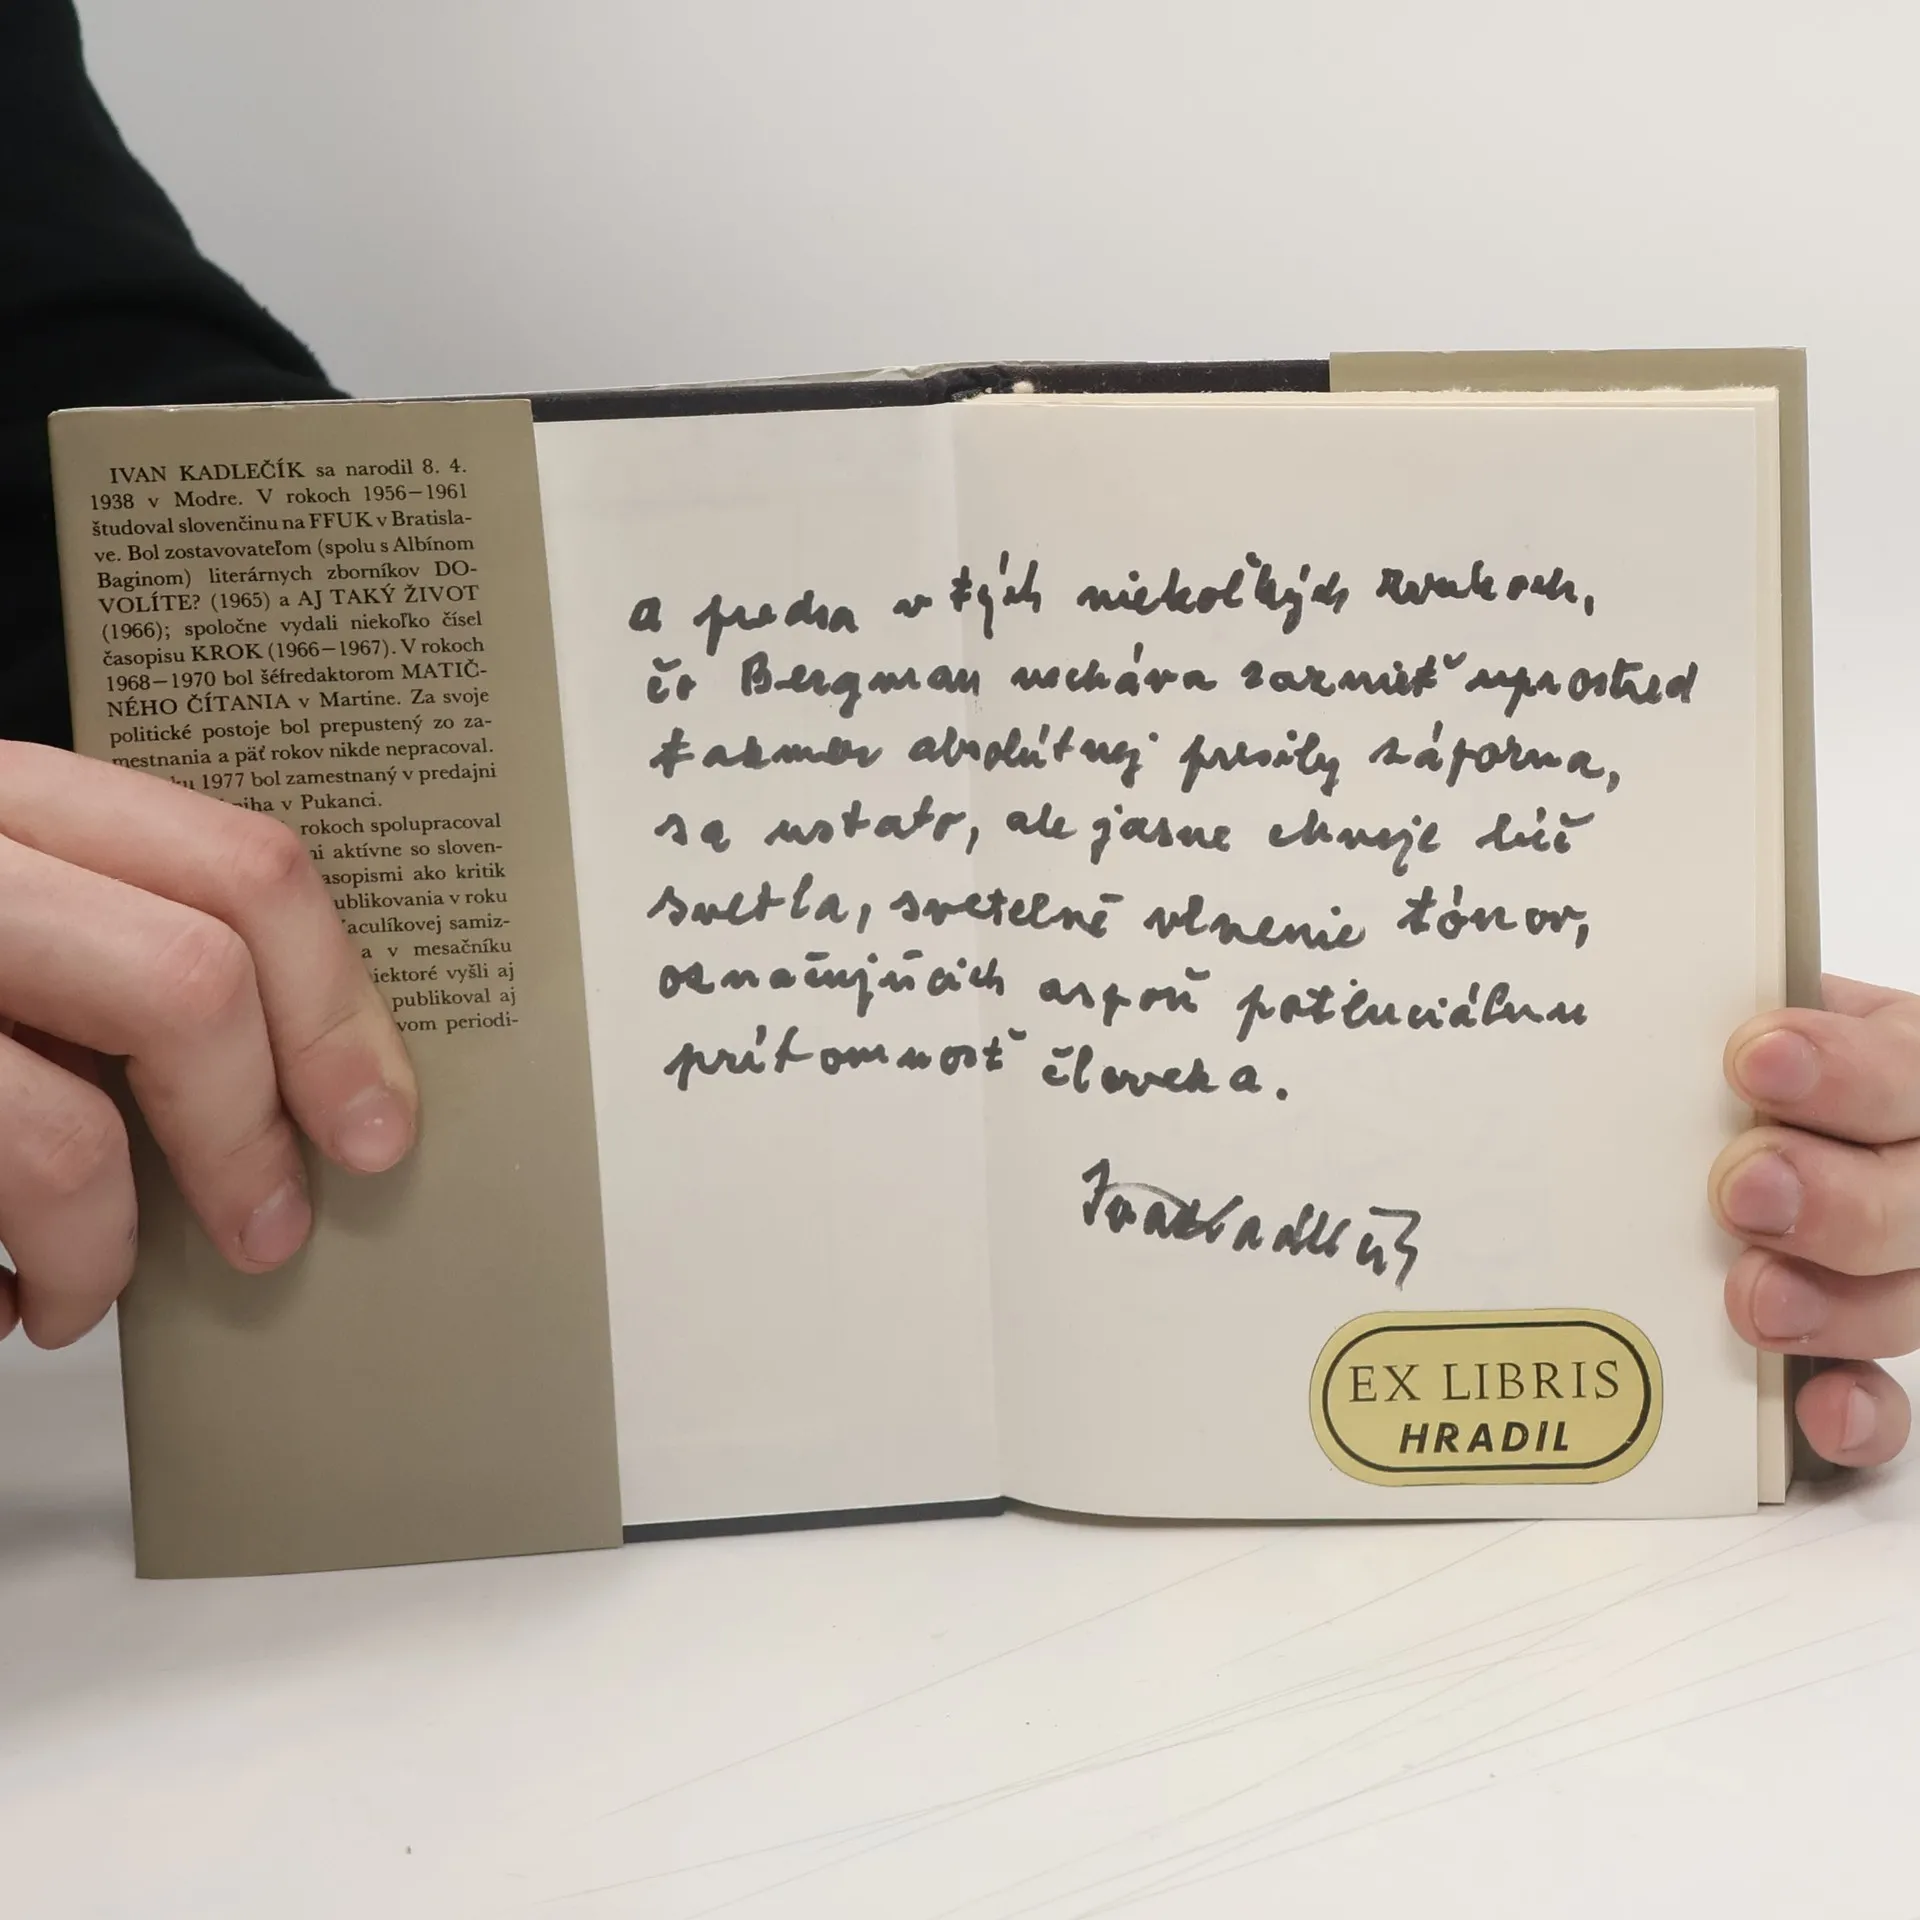 IVAN KADLEČÍK sa narodil 8. 4.
1938 v Modre. V rokoch 1956–1961
študoval slovenčinu na FFUK v Bratisla-
ve. Bol zostavovateľom (spolu s Albínom
Baginom) literárnych zborníkov DO-
VOLÍTE? (1965) a AJ TAKÝ ŽIVOT
(1966); spoločne vydali niekoľko čísel
časopisu KROK (1966–1967). V rokoch
1968–1970 bol šéfredaktorom MATIČ-
NÉHO ČÍTANIA v Martine. Za svoje
politické postoje bol prepustený zo za-
mestnania a päť rokov nikde nepracoval.
1977 bol zamestnaný v predajni
v Pukanci.
rokoch spolupracoval
aktívne so sloven-
ako kritik
v roku
samiz-
a v mesačníku
vyšli aj
publikoval aj
periodi-
a predsa v tých niekoľkých zvukoch,
čo Bergman necháva zaznieť uprostred
takmer absolútnej presily záporna,
sa ustato, ale jasne chveje lúč
svetla, svetelné vlnenie tónov,
označujúcich aspoň potenciálnu
prítomnosť človeka.
Ivan Kadlečík
EX LIBRIS
HRADIL